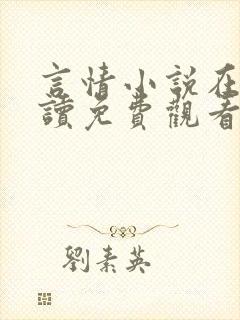 言情小説在
讀免費觀看
劉素英